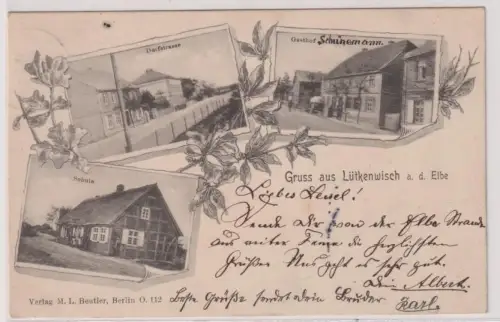 Dorfstrasse
Gasthof Schünemann.
Schule
Gruss aus Lütkenwisch a. d. Elbe
Liebes Heusel!
Sende dir von der Elbe Strande
aus guter Ferne die herzlichsten
Grüße. Uns geht es sehr gut.
Dein Albert.
Beste Grüße sendet dein Bruder
Karl.
Verlag M. L. Beutler, Berlin O. 112